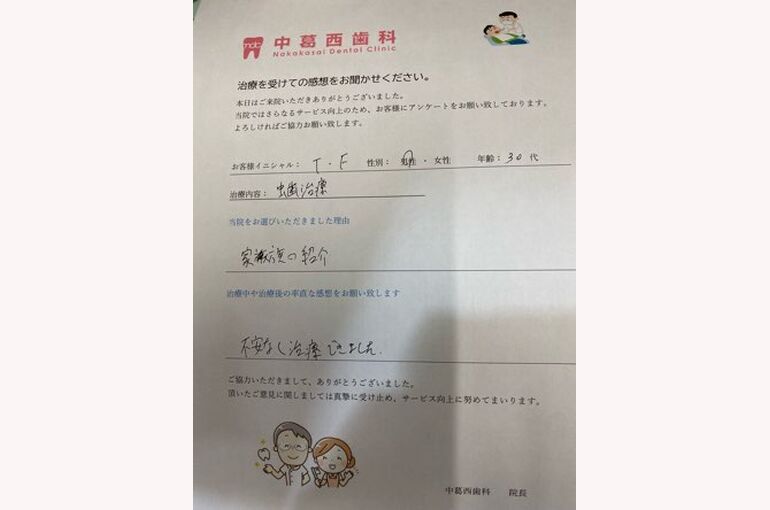 nac
中葛西歯科
Nakakasai Dental Clinic
治療を受けての感想をお聞かせください。
本日はご来院いただきありがとうございました。
当院ではさらなるサービス向上のため、お客様にアンケートをお願い致しております。
よろしければご協力お願い致します。
お客様イニシャル： T・F 性別： 男性 ・ 女性 年齢： 30 代
治療内容： 虫歯治療
当院をお選びいただきました理由
家族の紹介
治療中や治療後の率直な感想をお願い致します
不安なく治療できました.
ご協力いただきまして、ありがとうございました。
頂いたご意見に関しましては真摯に受け止め、サービス向上に努めてまいります。
中葛西歯科 院長